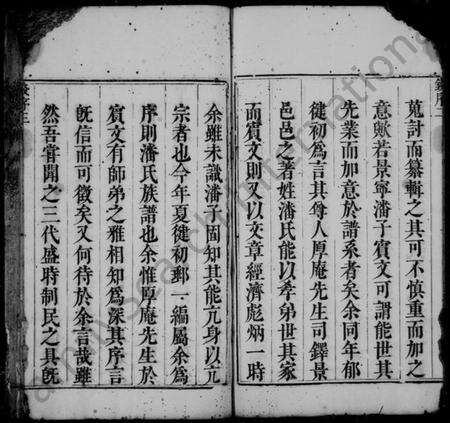 蒐討而纂輯之其可不慎重而加之
意歟若景寧潘子賓文可謂能世其
先業而加意於譜系者矣余同年郁
健初為言其尊人厚庵先生司鐸景
邑邑之著姓潘氏能以孝弟世其家
而賓文則又以文章經濟彪炳一時
余雖未識潘子固知其能亢身以亢
宗者也今年夏健初郵一編屬余為
序則潘氏族譜也余惟厚庵先生於
賓文有師弟之雅相知為深其序言
旣信而可徵矣又何待於余言哉雖
然吾嘗聞之三代盛時制民之具旣